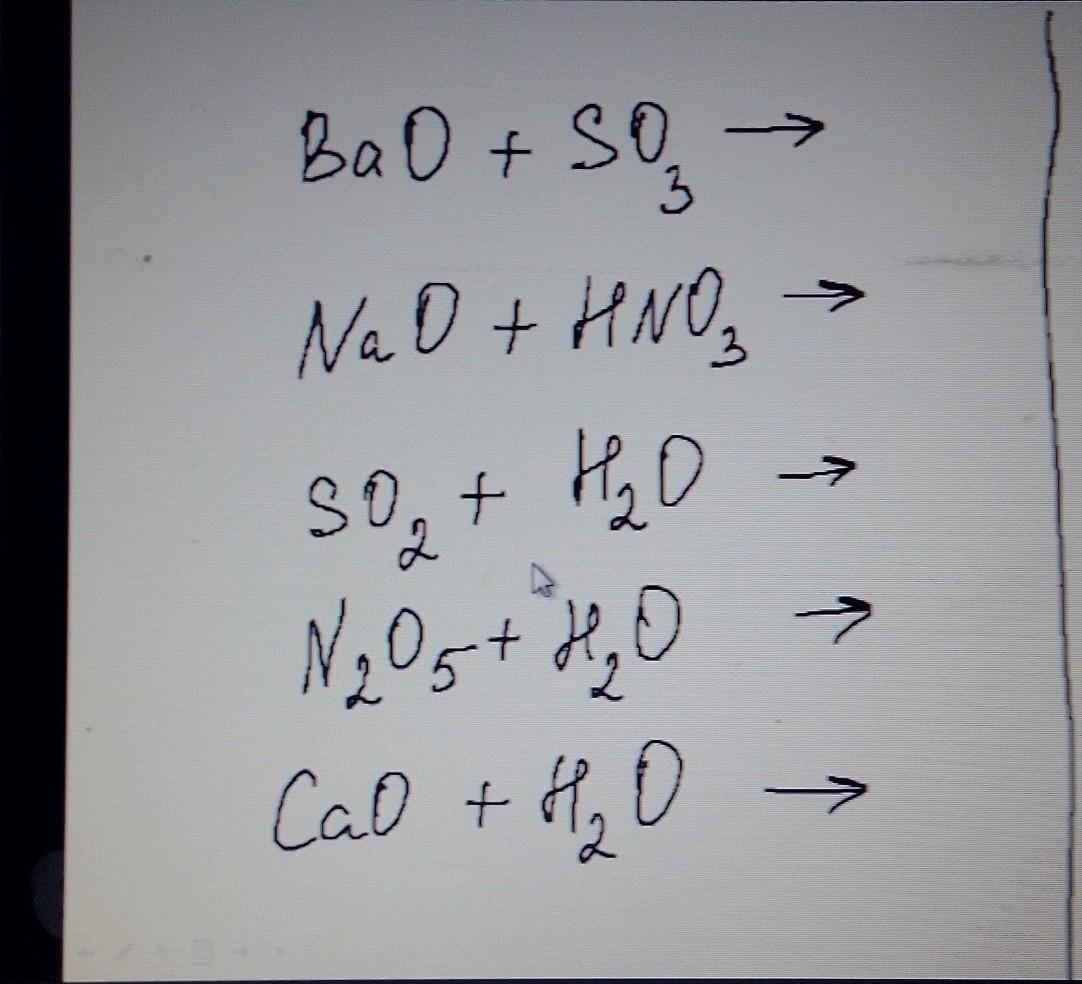 BaO + SO₃ →
NaO + HNO₃ →
SO₂ + H₂O →
N₂O₅ + H₂O →
CaO + H₂O →